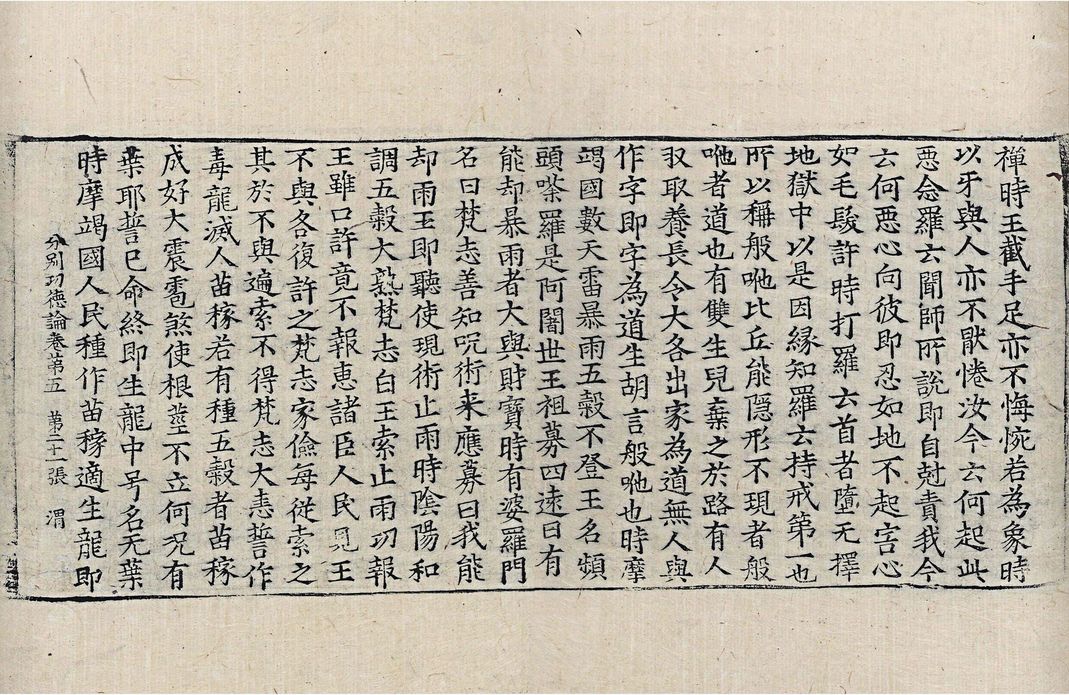 禪時王截手足亦不悔惋若為象時
以牙與人亦不猒惓汝今云何起此
惡念羅云聞師所說即自尅責我今
云何惡心向彼即忍如地不起害心
如毛髮許時打羅云首者墮无擇
地獄中以是因緣知羅云持戒第一也
所以稱般咃比丘能隱形不現者般
咃者道也有雙生兒棄之於路有人
収取養長今大各出家為道無人與
作字即字為道生胡言般咃也時摩
竭國數天雷暴雨五穀不登王名頻
頭娑羅是阿闍世王祖募四遠曰有
能却暴雨者大與財寶時有婆羅門
名曰梵志善知呪術来應募曰我能
却雨王即聽使現術止雨時陰陽和
調五穀大熟梵志白王索止雨功報
王雖口許竟不報恵諸臣人民見王
不與各復許之梵志家儉每從索之
其於不與遍索不得梵志大恚誓作
毒龍滅人苗稼若有種五穀者苗稼
成好大震雹煞使根莖不立何况有
葉耶誓已命終即生龍中号名无葉
時摩竭國人民種作苗稼適生龍即
分別功德論卷第五 第二十一張 渭